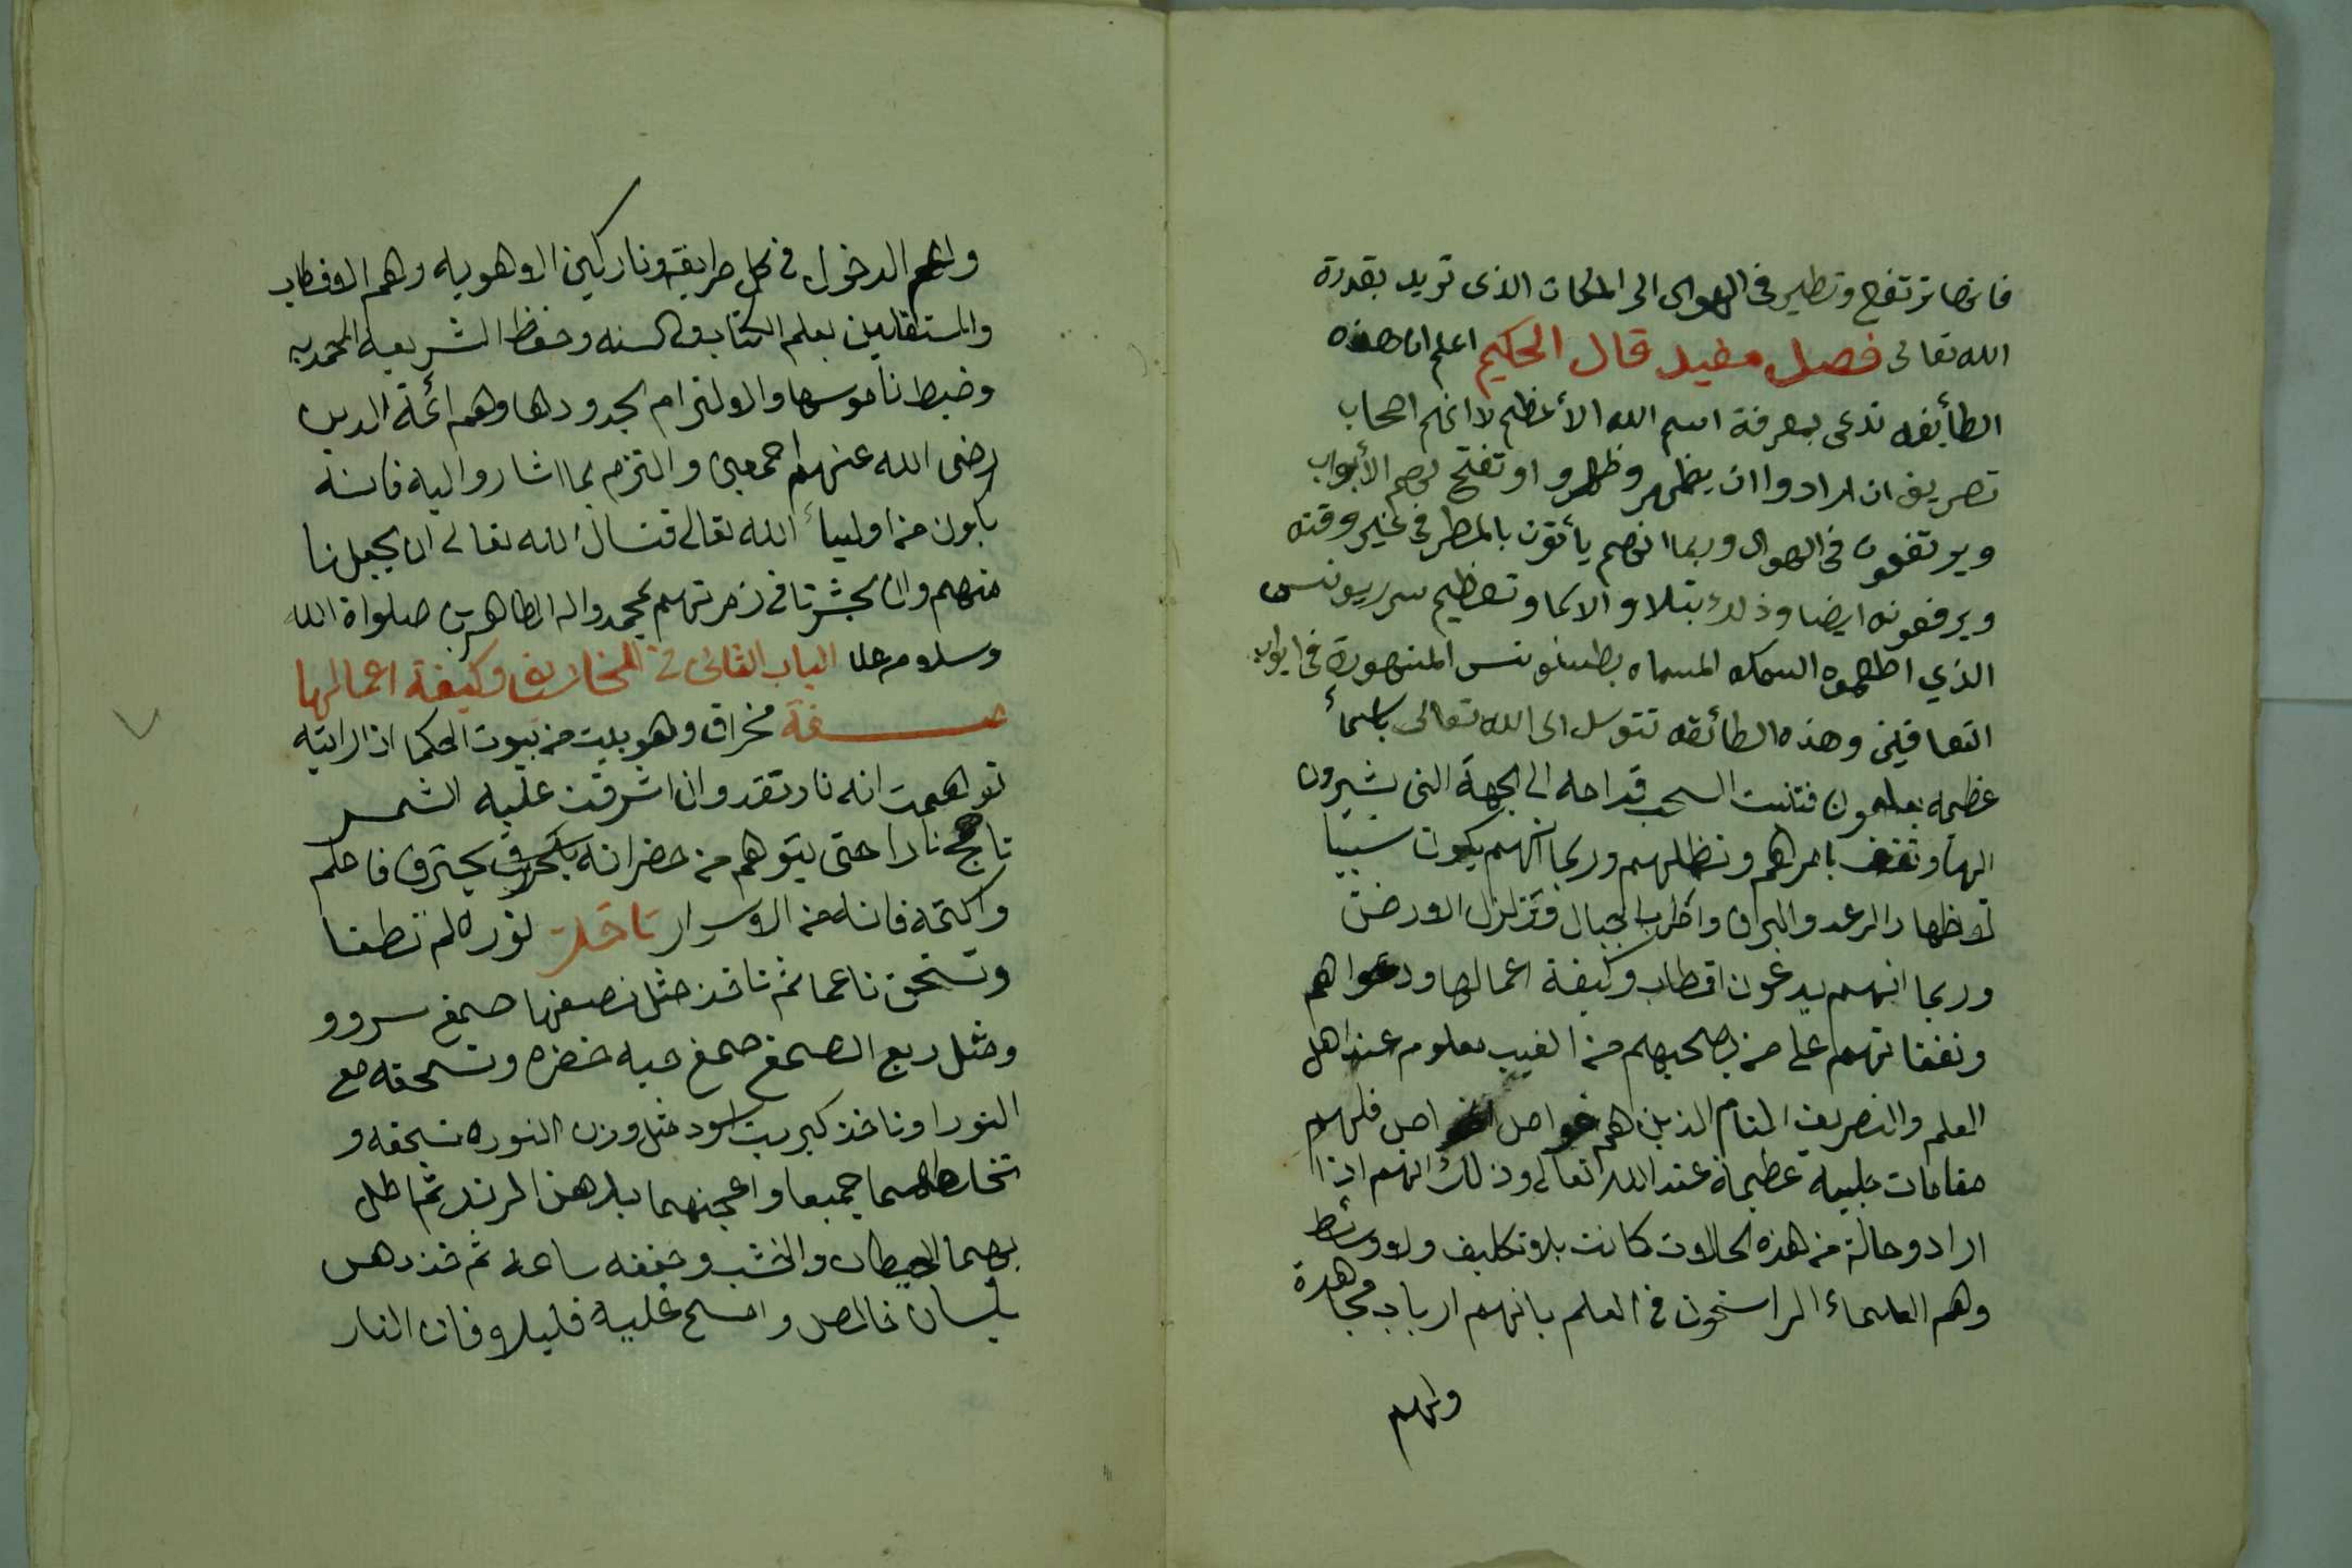 فانها ترتفع وتطير فى الهوى الى المكان الذى تريد بقدرة
الله تعالى فصل مفيد قال الحكيم اعلم ان هذه
الطأيفه تدعى بمعرفة اسم الله الأعظم لا انهم اصحاب
تصريف ان ارادوا ان يظهر وظهرو او تفتح لهم الأبواب
ويرتفعون فى الهوى وربما انهم يأتون بالمطر فى غير وقته
ويرفعونه ايضا وذلك بتلاو الاسما وتعظيم سر يونس
الذي اظلموه السمكه المسماه المشهورة فى ايواب
الثعافين وهذه الطائفه تتوسل الى الله تعالى باسمأ
عظيمه يعلمون السحب الى الجهة التى يشيرون
اليها وتقف بامرهم وتظلهم وربما انهم يكون سببا
لاظهار الرعد والبرق واظرب الجبال وتزلزل الارض
وربما انهم يدعون اقطاب وكيفة اعمالها ودعواهم
ونفقاتهم على من يصحبهم من الغيب معلوم عند اهل
العلم والتصريف التام الذين هم خواص الخواص فلهم
مقامات جليله عظيمة عند الله تعالى وذلك انهم اذا
ارادو حالة من هذه الحالات كانت بلا تكليف ولا وسائط
وهم العلماء الراسخون فى العلم بانهم ارباب مجاهدة
ولهم
ولهم الدخول فى كل طرايقه وتاركين الاهويه وهم الاقطاب
والمستقلين بعلم الكتاب والسنه وحفظ الشريعة المحمديه
وضبط ناموسها والالتزام لحدودها وهم ائمة الدين
رضى الله عنهم اجمعين والتزم بما اشاروا اليه فانه
يكون من اولياء الله تعالى فنسال الله تعالى ان يجعلنا
منهم وان يحشرنا فى زمرتهم بمحمد واله الطاهرين صلواة الله
وسلامه على الباب الثانى فى المخاريق وكيفة اعمالها
صفة مخراق وهو بيت من بيوت الحكما اذا رايته
توهمت انه نار تقد وان اشرقت عليه الشمس
تاجج نارا حتى يتوهم من حضر انه يحترق فاعلم
واكتمه فانه من الاسرار تاخذ نوره لم تطفا
وتسحق ناعما ثم تاخذ مثل نصفها صمغ سرو و
ومثل ربع الصمغ صمغ حبه خضره وتسحقه مع
النورا وتاخذ كبريت اسود مثل وزن النوره تسحقه و
تخلطهما جميعا واعجنهما بدهن الرند ثم اطل
بهما الحيطان والخشب وجففه ساعة ثم خذ دهن
بلسان خالص وامسح عليه قليلا وفان النار